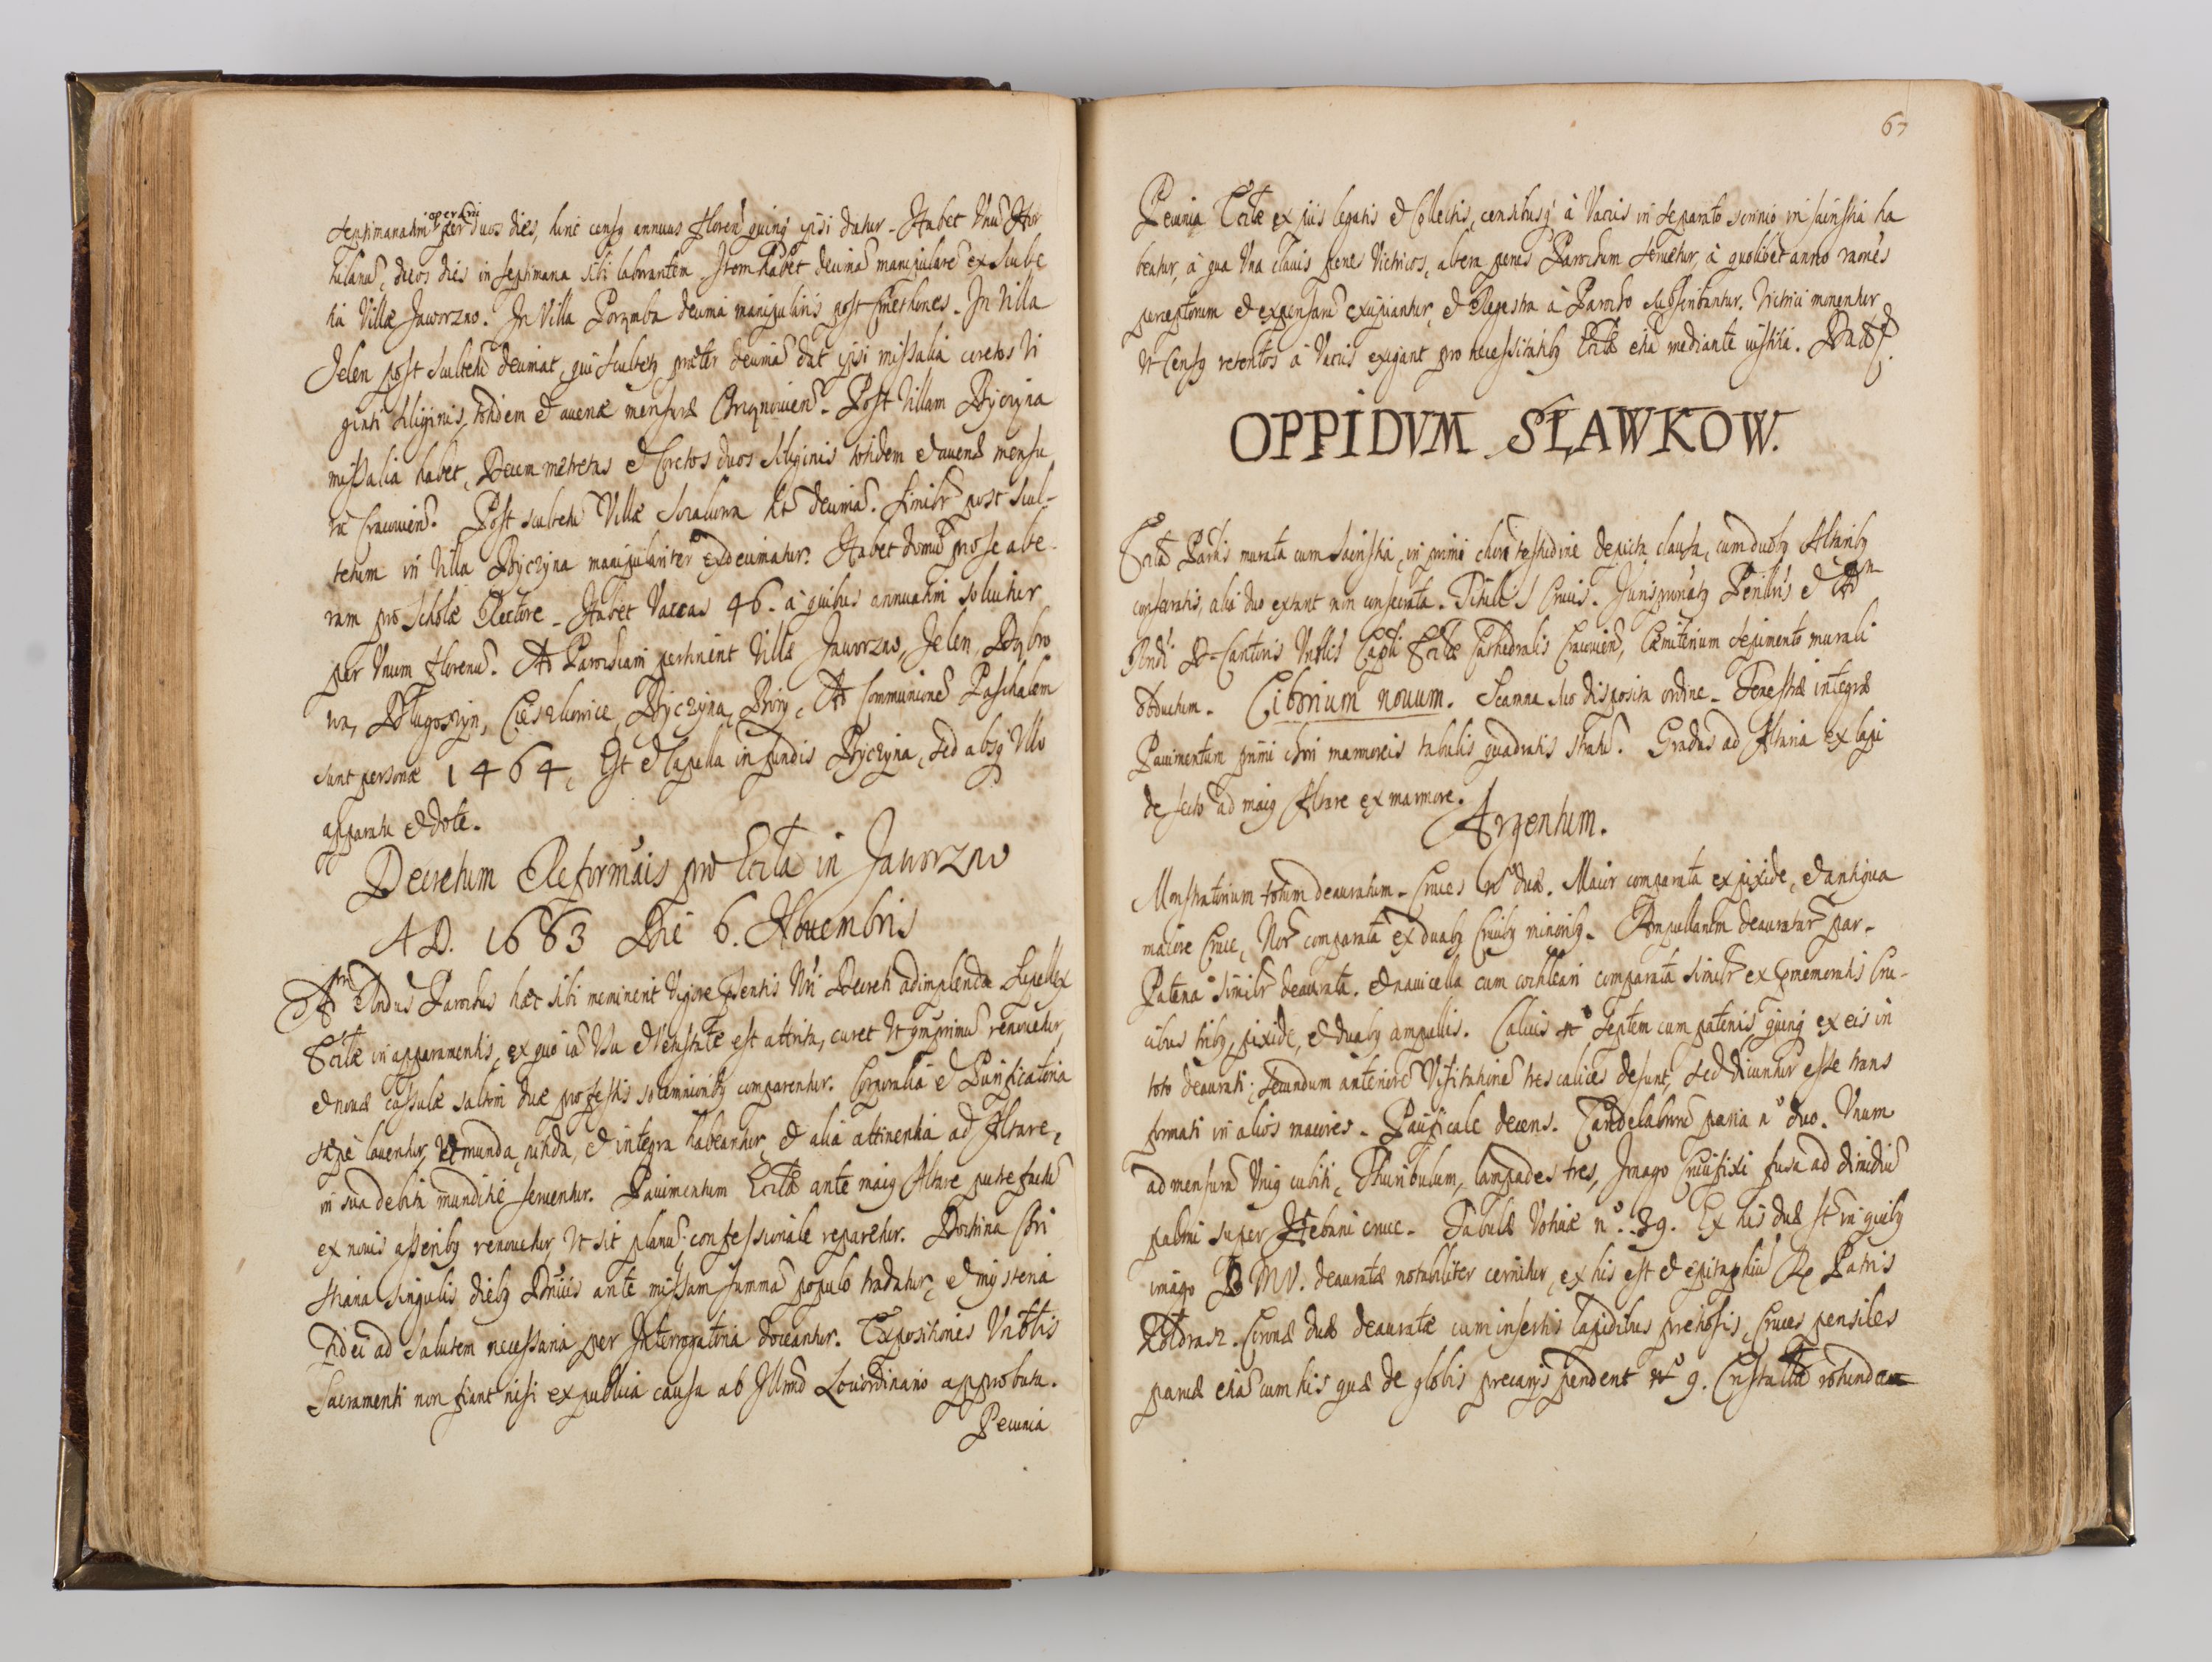 septimanatim operarii per duos dies, hinc censq annuus floren̄ quinq ipsi datur. Habet Unū Hor
tulanū, duos dies in septimana sibi laborantem. Item habet decimā manipularē ex Sculte
tia Villæ Jaworzno. In Villa Porzmba decima manipularis post Cmethones. In Villa
Jelen post scultetū decimat, qui scultetq præter decimā dat ipsi missalia coretos Vi
ginti siliginis, totidem et auenæ mensuræ Chrzanouien̄. Post Villam Byczyna
missalia habet, Decem metretas et Coretos duos siliginis totidem et auenæ mensu
ræ Cracouien̄. Post scultetū Villæ Szczakowa ht decimā. Similr post Scul-
tetum in Villa Byczyna manipulariter exdecimatur. Habet domū pro se alte-
ram pro Scholæ Rectore. Habet Vaccas 46. à quibus annuatim soluitur
per Vnum florenū. Ad Parochiam pertinent Villæ Jaworzno, Jelen, Dąbro
wa, Długoszyn, Cieszkowice, Byczyna, Bory. Ad Communionē Paschalem
sunt personæ 1464, Est et Capella in fundis Byczyna, sed absq Vllo
apparatu et dote.
Decretum Reformāis pro Eccla in Jaworzno
A D. 1683 Die 6. Nouembris
Adm Rndus Parochus hæc sibi meminerit Vigore pñtis Nri Decreti adimplenda Supellex
Ecclæ in apparamentis, ex quo iā Vsu et Vetustate est attrita, curet Vt qmprimū renouetur,
et nouæ casulæ saltim duæ pro festis solemnioribq comparentur. Corporalia et Purificatoria
sæpè lauentur, Vt munda, nitida, et integra habeantur, et alia attinentia ad Altare,
in sua debita munditie seruentur. Pauimentum Ecclæ ante maiq Altare putrefactū
ex nouis asseribq renouetur, Vt sit planū. confessionale reparetur. Doctrina Chri
stiana singulis diebq Dnicis ante missam summā populo tradatur, et mysteria
Fidei ad Salutem necessaria per Interrogatoria doceantur. Expositiones Vnbtis
Sacramenti non fiant nisi ex publica causa ab Illmo Loci Ordinario approbata.
Pecunia
67
Pecunia Ecclæ ex piis legatis et Collectis, censibusq à Variis in separato scrinio in sacristia ha
beatur, à qua Vna clauis penes Victricos, altera penes Parochum seruetur, à quolibet anno raones
perceptorum et expensarū excipiantur, et Regestra à Parocho subscribantur. Victrici moneantur
Vt Censq retentos à Variis exigant pro necessitatibq Ecclæ etiā mediante iustitia.
OPPIDVM SŁAWKOW.
Eccla Parlis murata cum Sacristia, in primi chori testudine depicta clausa, cum duobq Altaribq
consecratis, alia duo extant non consecrata. Tituli S Crucis. Jurispatronatq Perillris et Adm
Rndi D. Cantoris Vnblis Capli Ecclæ Cathedralis Cracouien̄, Cæmiterium sepimento murali
obductum. Cibrium nouum. Scamna suo disposita ordine. Fenestræ integræ
Pauimentum primi chori marmoreis tabulis quadratis stratū. Gradus ad Altaria ex lapi
de secto ad maiq Altare ex marmore.
Argentum.
Monstratorium totum deauratum. Cruces nº duæ. Maior comparata ex pixide, et antiqua
maiore Cruce, Nor̄ comparata ex duabq Crucibq minoribq. Ampullarūm deauratarū par.
Patena similr deaurata. et nauicella cum cochleari comparata similr ex præmemoratis Cru-
cibus tribq, pixide, et duabq ampullis. Calices nº septem cum patenis, quinq ex eis in
toto deaurati; secundum anteriorē Visitationē tres calices desunt, sed dicuntur esse trans
formati in alios maiores. Pacificale decens. Candelabrorū paria nº duo. Vnum
ad mensurā Vniq cubiti, Thuribulum, lampades tres, Imago Crucifixi fusa ad dimidiū
palmi super Hebani cruce. Tabulæ Votiuæ nº. 39. Ex his duæ st in quibq
imago B M V. deauratæ notabiliter cernitur, ex his est et epitaphiū Rx Patris
Koldrasz. Coronæ duæ deauratæ cum insertis lapidibus pretiosis, Cruces pensiles
paruæ etiā cum his quæ de globis precarijs pendent nº 9. Crystalla rotunda